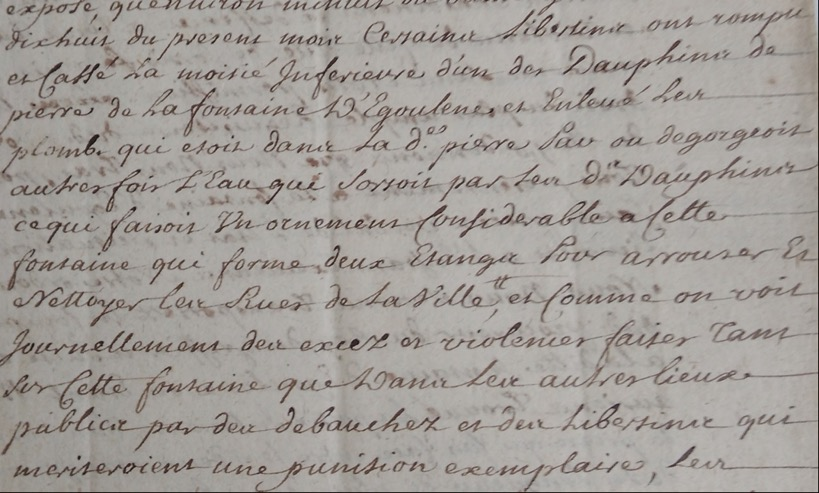 exposé, quenviron minuit du
dixhuit du present mois Certains libertins ont rompu
et Cassé la moitié Inferieure d'un des Dauphins de
pierre de la fontaine D'Egoulene, et Enlevé les
plombs qui etoit dans la d.e pierre Par ou degorgeoit
autresfois L'Eau qui Sortoit par les d.ts Dauphins
ce qui faisoit Un ornement Considerable a Cette
fontaine qui forme deux Etangs Pour arrouser Et
Nettoyer les Rues de la Ville, et Comme on voit
Journellement des excez et violences faites Tant
sur Cette fontaine que Dans les autres lieux
publics par des debauchez et des libertins qui
meriteroient une punition exemplaire, les